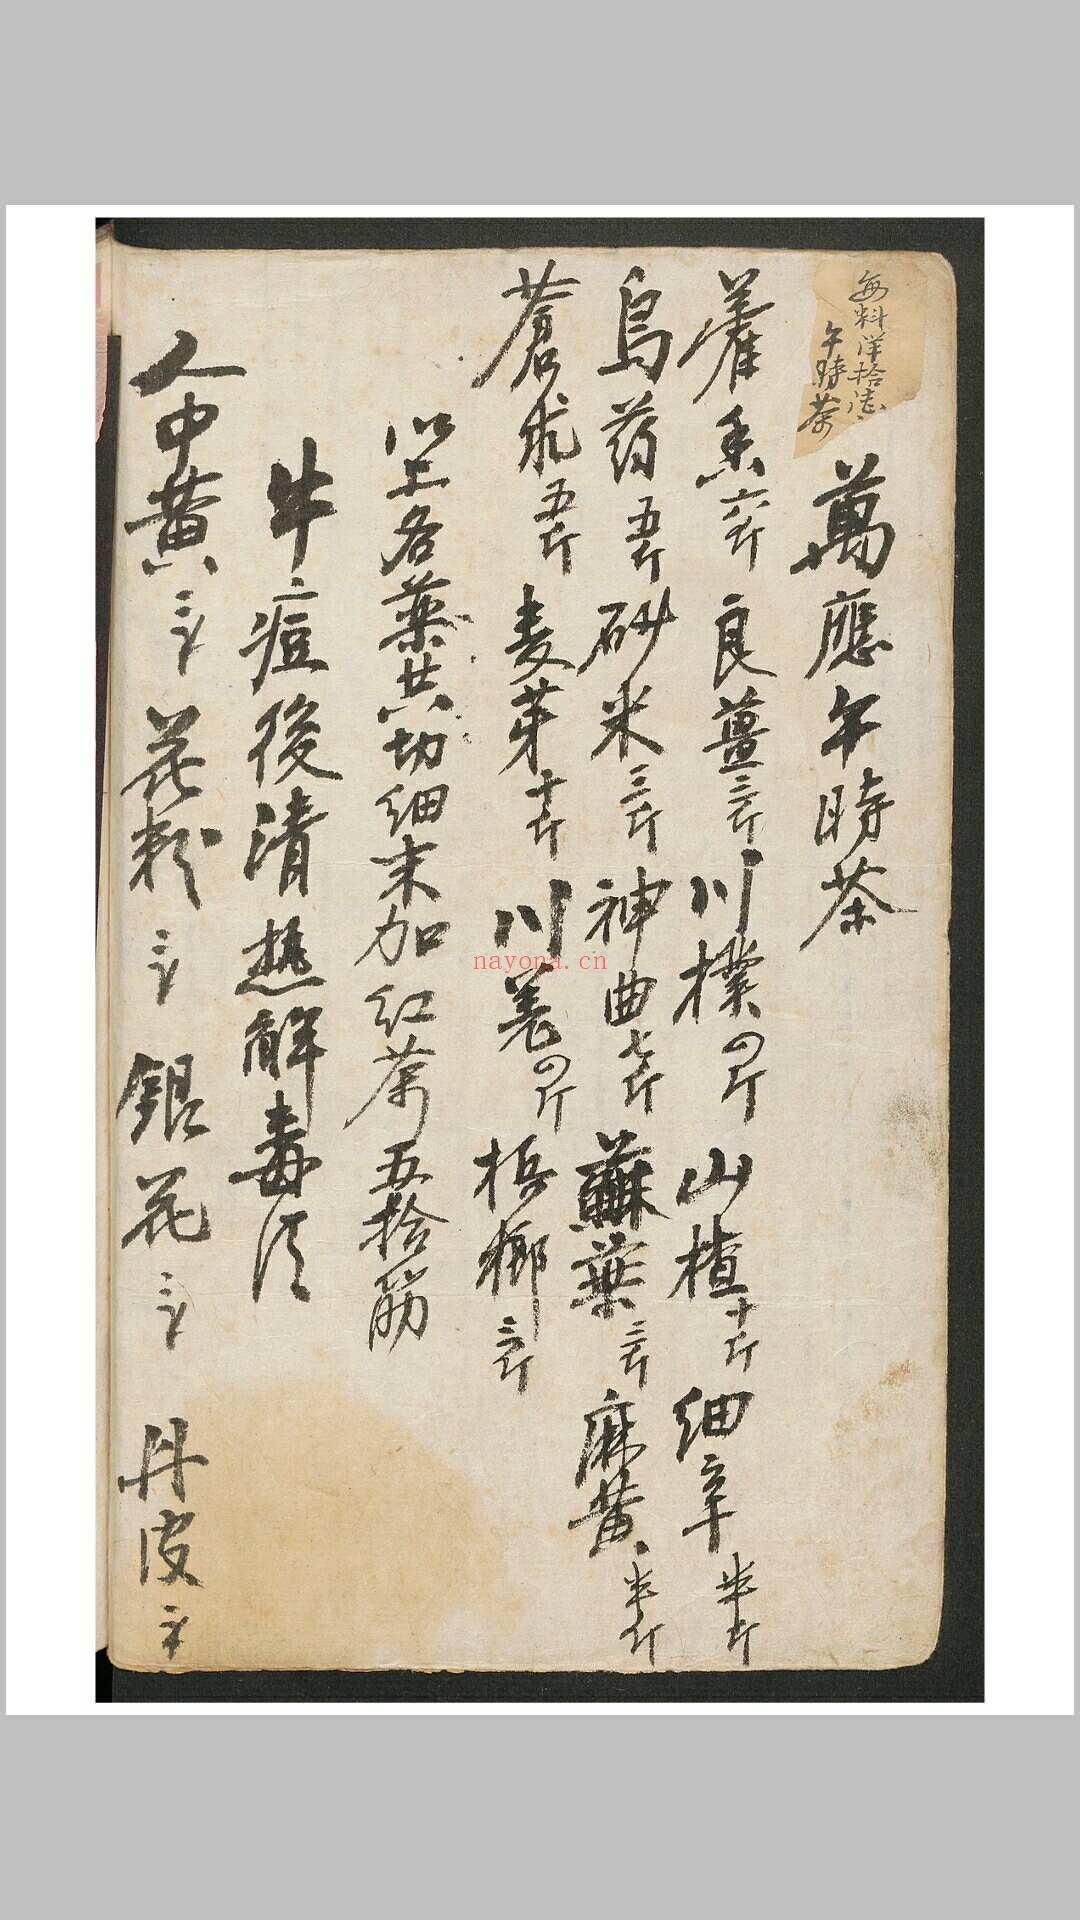 每料洋拾
午時茶
萬應午時茶
藿香六斤 良薑三斤 川樸四斤 山楂十斤 细辛半斤
烏药五斤 砂米三斤 神曲七斤 蘇葉三斤 麻黄半斤
蒼朮五斤 麦芽十斤 川羌四斤 梹榔三斤
以上各藥共切细末加红茶五拾觔
牛痘後清熱解毒法
人中黄三 花粉三 銀花三 丹皮
nayona.cn